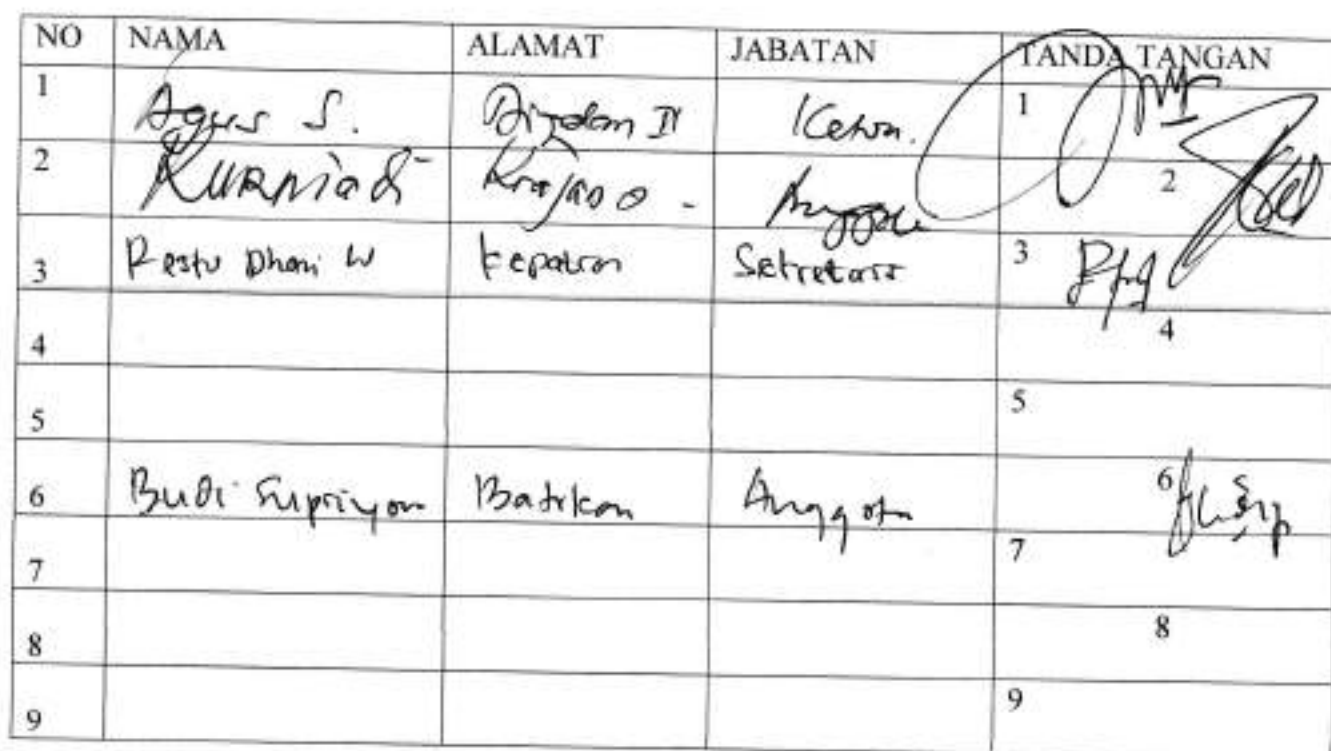 NO NAMA ALAMAT JABATAN TANDA TANGAN
1 Agus S. Ketua. 1
2 KURNiadi Anggota 2
3 Restu Dhani W Sekretaris 3
4 4
5 5
6 Budi Supriyon Batikan Anggota 6
7 7
8 8
9 9